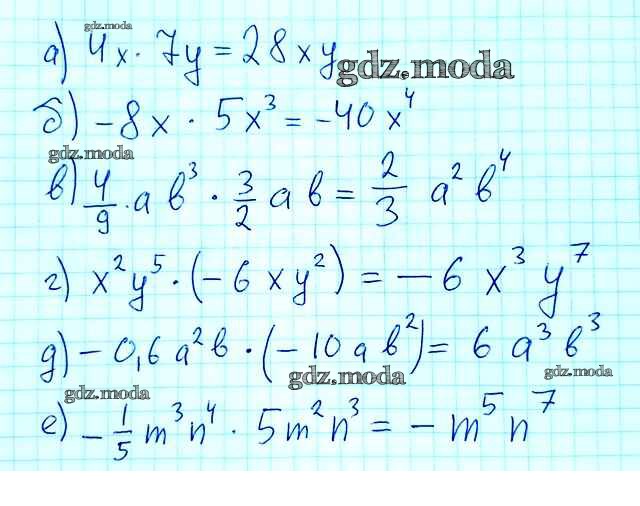 gdz.moda
а) 4x · 7y = 28xy
gdz.moda
б) -8x · 5x³ = -40x⁴
gdz.moda
в) 4/9 · ab³ · 3/2 ab = 2/3 a²b⁴
г) x²y⁵ · (-6xy²) = -6x³y⁷
д) -0,6a²b · (-10ab²) = 6a³b³
gdz.moda
gdz.moda
gdz.moda
е) -1/5 m³n⁴ · 5m²n³ = -m⁵n⁷